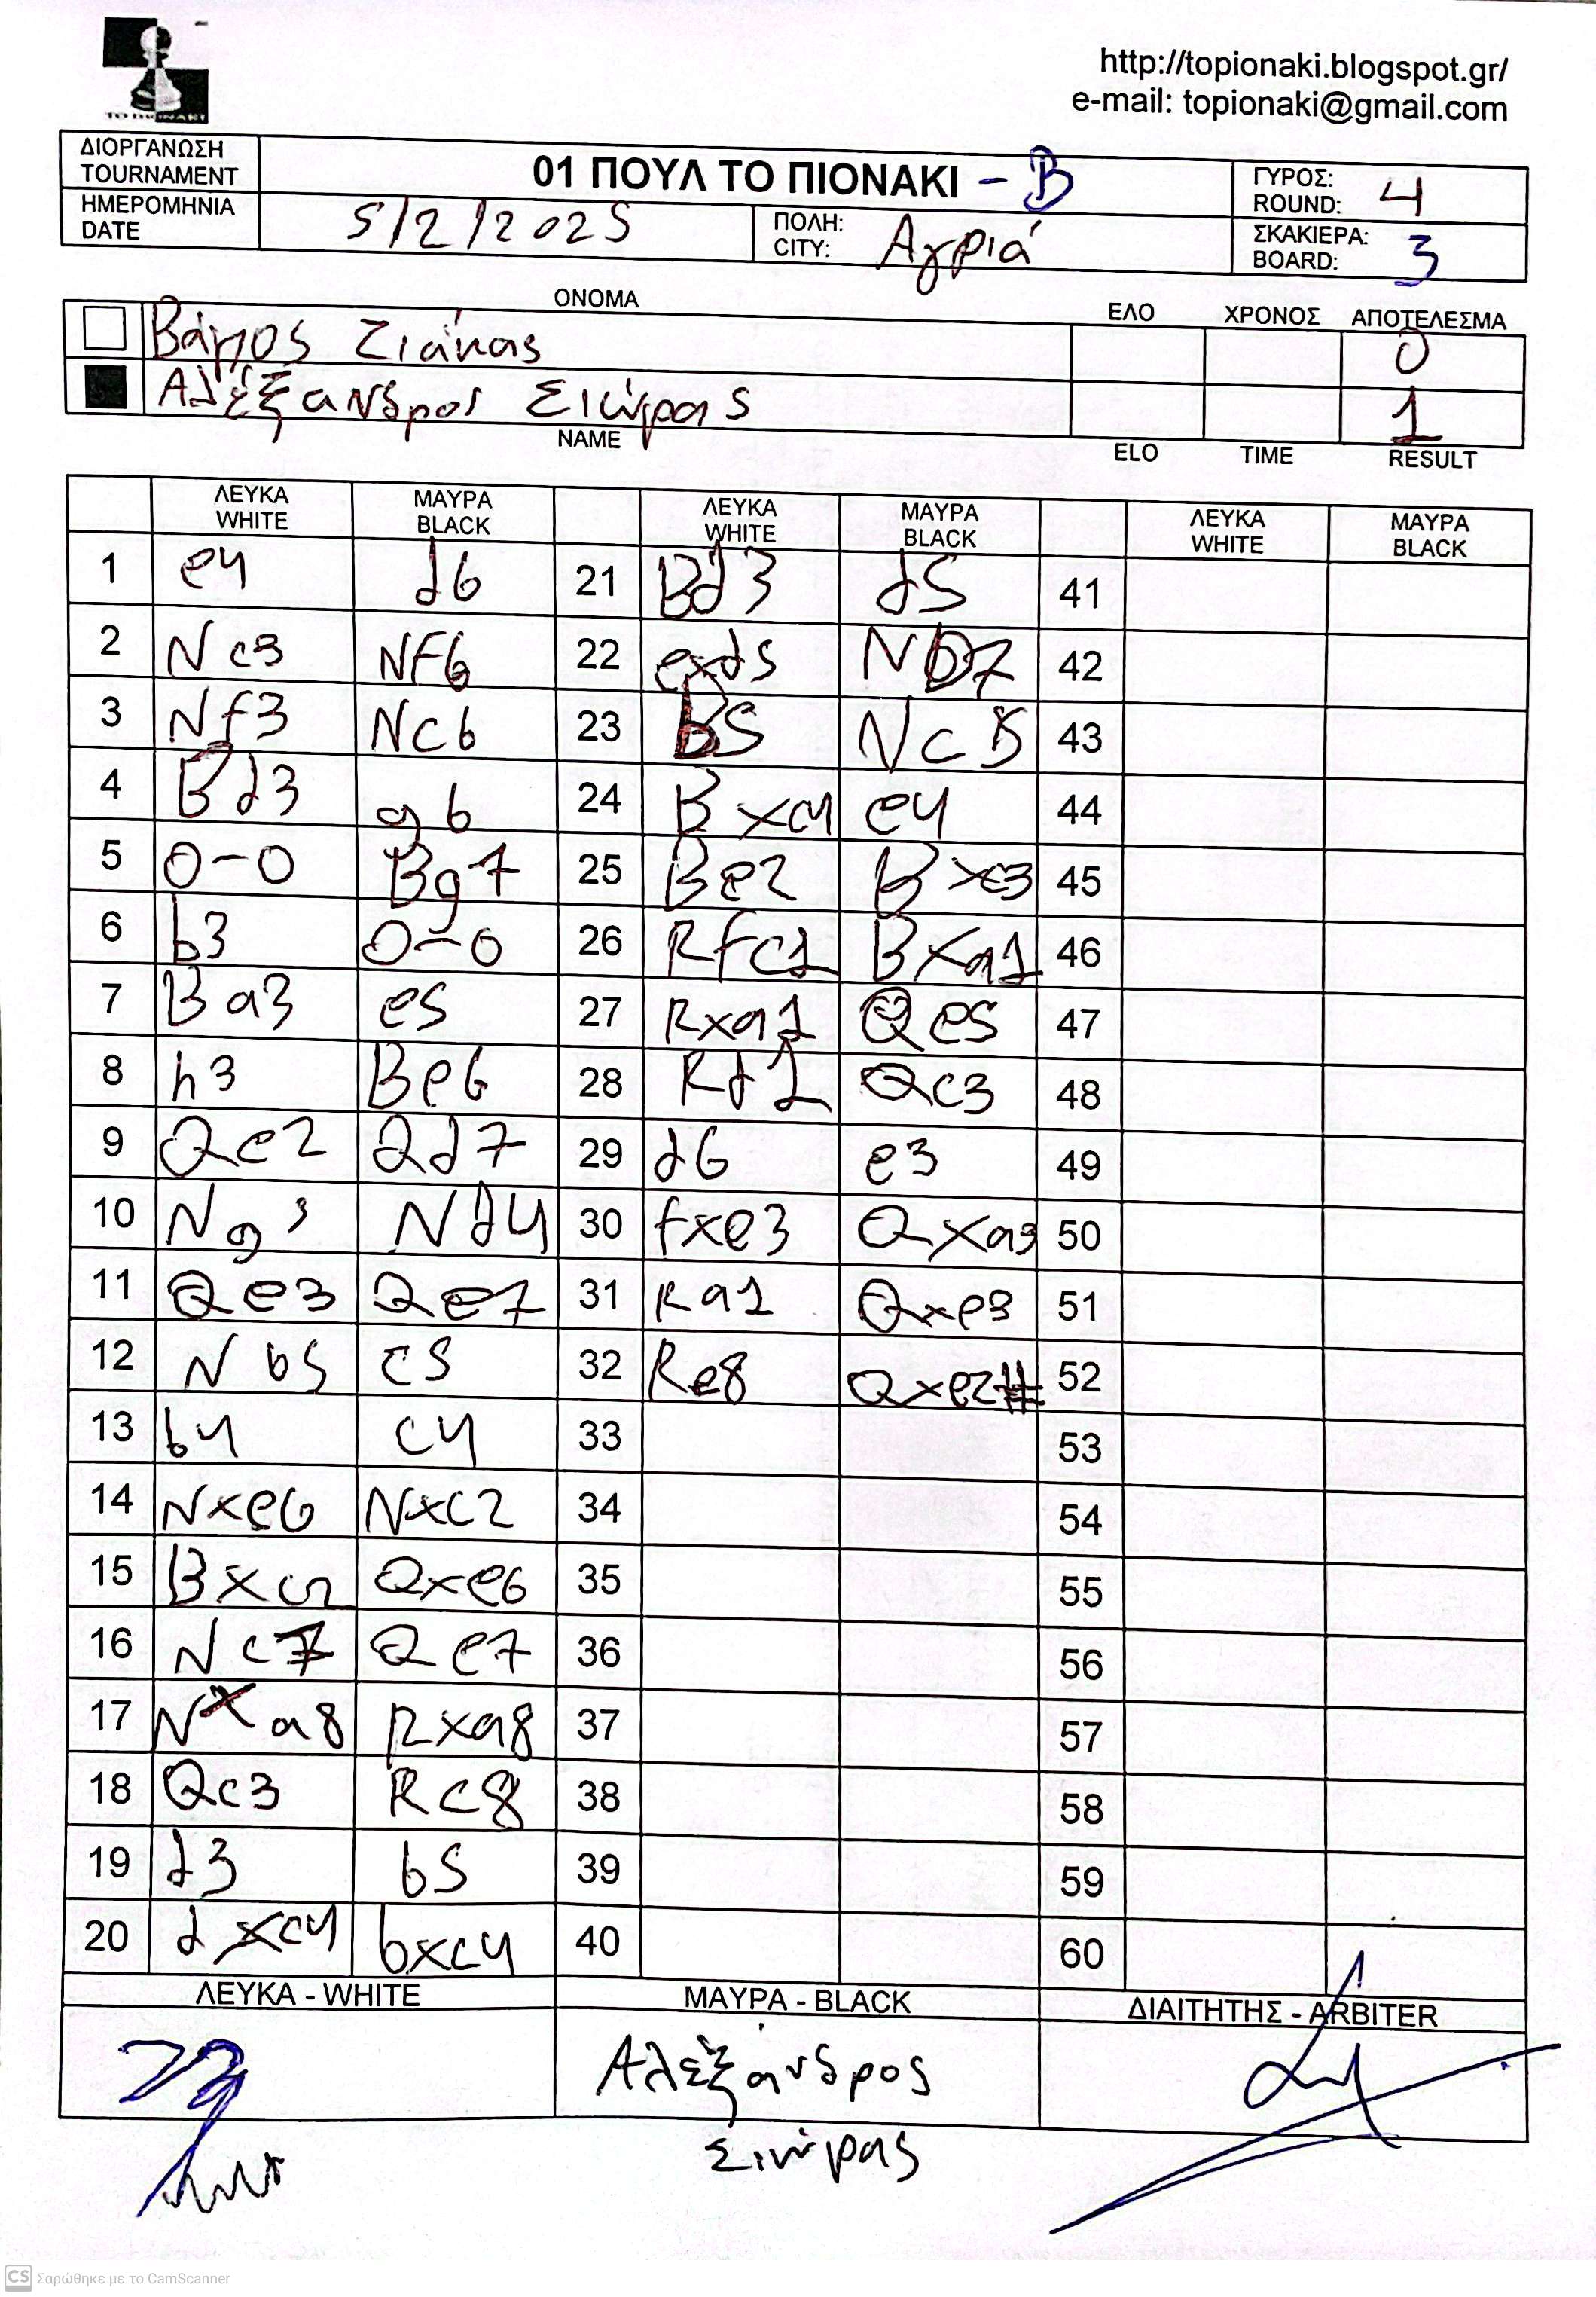 ΤΟ ΠΙΟΝΑΚΙ
http://topionaki.blogspot.gr/
e-mail: topionaki@gmail.com
ΔΙΟΡΓΑΝΩΣΗ
TOURNAMENT
01 ΠΟΥΛ ΤΟ ΠΙΟΝΑΚΙ - B
ΓΥΡΟΣ:
ROUND: 4
ΗΜΕΡΟΜΗΝΙΑ
DATE
5/2/2025
ΠΟΛΗ:
CITY: Αγριά
ΣΚΑΚΙΕΡΑ:
BOARD: 3
ΟΝΟΜΑ ΕΛΟ ΧΡΟΝΟΣ ΑΠΟΤΕΛΕΣΜΑ
Ζιάκας 0
Αλέξανδρος 1
NAME ELO TIME RESULT
ΛΕΥΚΑ ΜΑΥΡΑ ΛΕΥΚΑ ΜΑΥΡΑ ΛΕΥΚΑ ΜΑΥΡΑ
WHITE BLACK WHITE BLACK WHITE BLACK
1 e4 d6 21 Bd3 d5 41
2 Nc3 NF6 22 exd5 ND7 42
3 Nf3 Nc6 23 B5 Nc5 43
4 Bd3 g6 24 Bxc4 e4 44
5 0-0 Bg7 25 Be2 Bxc3 45
6 b3 0-0 26 Rfc1 Bxa1 46
7 Ba3 e5 27 Rxa1 Qe5 47
8 h3 Be6 28 Rd1 Qc3 48
9 Qe2 Qd7 29 d6 e3 49
10 Ng5 Nd4 30 fxe3 Qxa3 50
11 Qe3 Qe7 31 Ra1 Qxe3 51
12 Nb5 c5 32 Re8 Qxe2# 52
13 b4 c4 33 53
14 Nxe6 Nxc2 34 54
15 Bxc2 Qxe6 35 55
16 Nc7 Qe7 36 56
17 Nxa8 Rxa8 37 57
18 Qc3 Rc8 38 58
19 d3 b5 39 59
20 dxc4 bxc4 40 60
ΛΕΥΚΑ - WHITE ΜΑΥΡΑ - BLACK ΔΙΑΙΤΗΤΗΣ - ARBITER
Αλεξάνδρος
CS Σαρώθηκε με το CamScanner